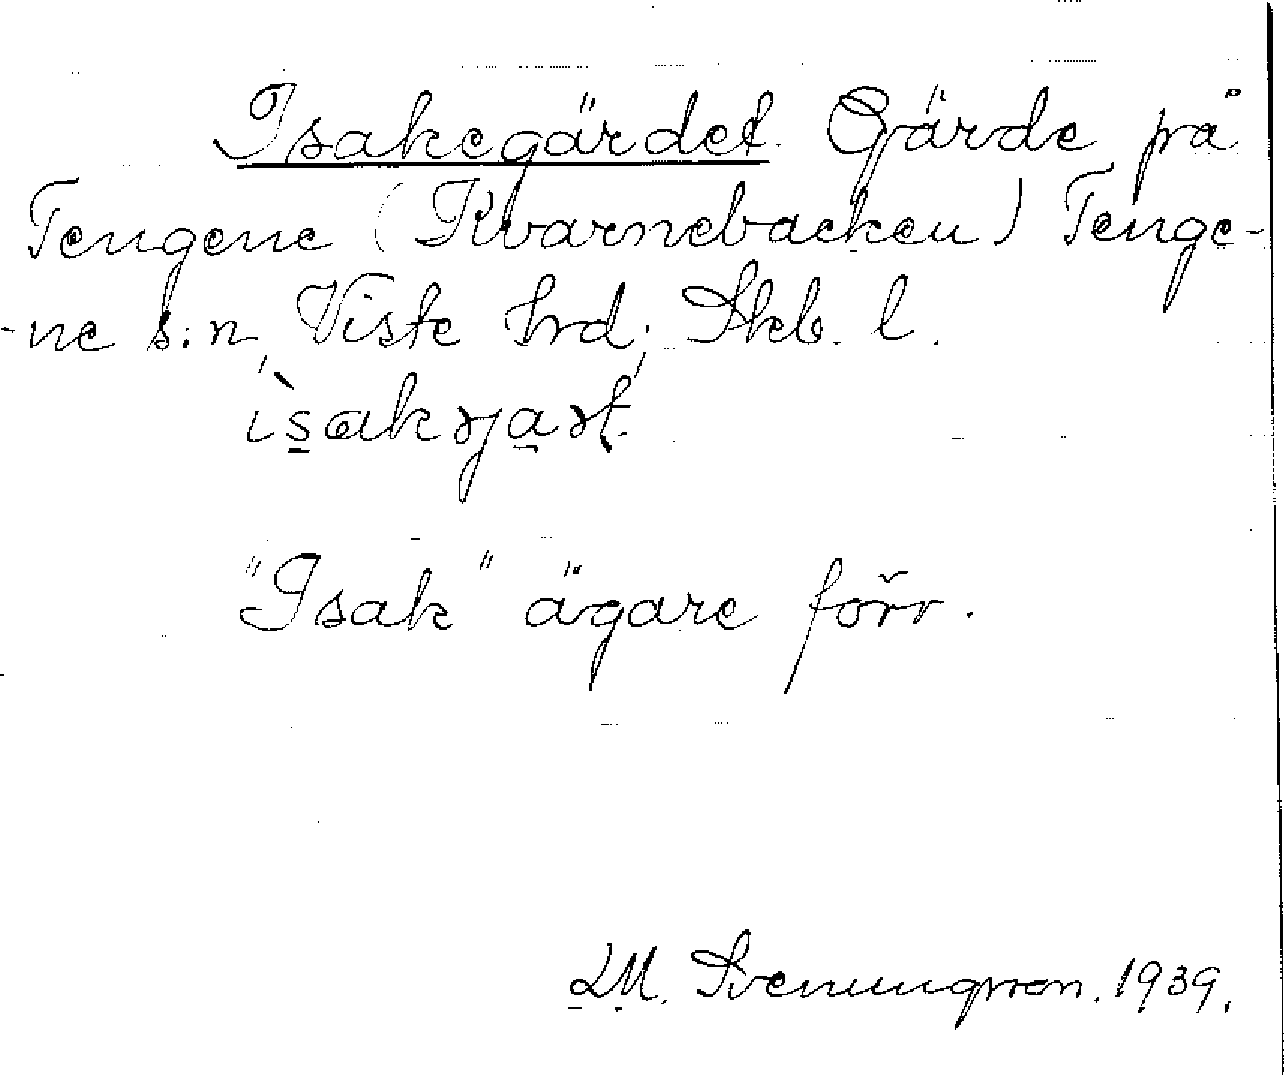 Isakegärdet. Gärde på
Tengene (Kvarnebacken) Tenge-
-ne s:n, Viste hrd; Skb. l.
ìsakəjaɽt.
"Isak" ägare förr.
LM. Svenungsson. 1939.